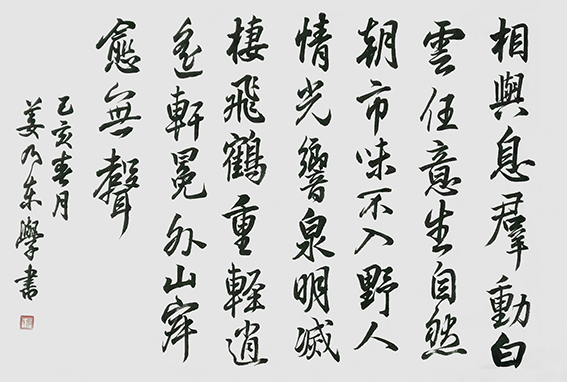 相與息羣動白
雲任意生自然
朝市味不入野人
情光響泉明滅
棲飛鶴重輕逍
遙軒冕外山寂
愈無聲
己亥春月
姜乃東學書